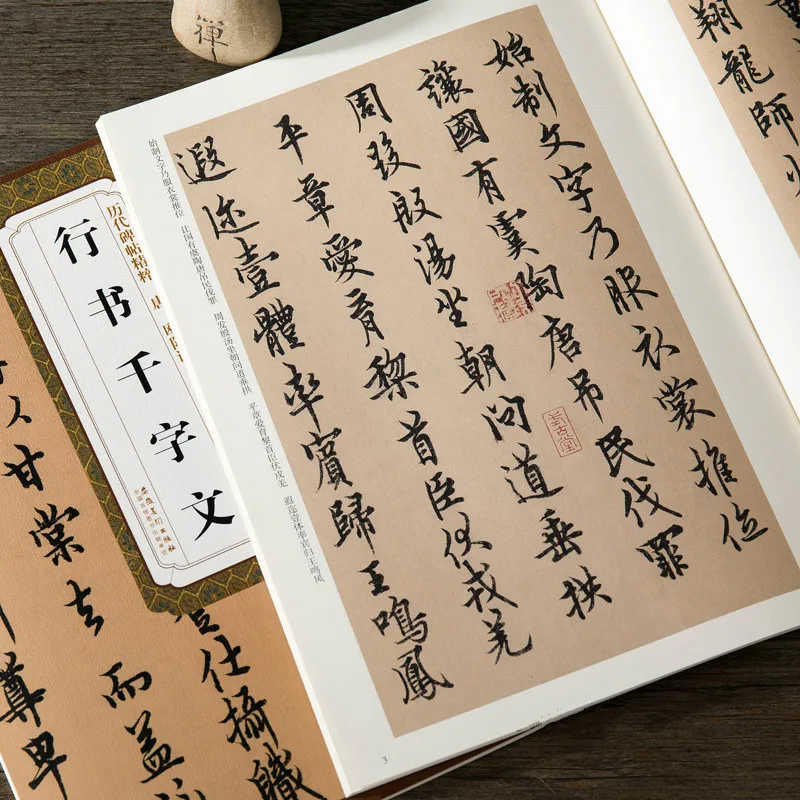 禪
翔龍師
始制文字乃服衣裳推位
讓國有虞陶唐吊民伐罪
周發殷湯坐朝問道垂拱
平章愛育黎首臣伏戎羌
遐迩壹體率賓歸王鳴鳳
始制文字乃服衣裳推位 让国有虞陶唐吊民伐罪 周发殷汤坐朝问道垂拱 平章爱育黎首臣伏戎羌 遐迩壹体率宾归王鸣凤
3
历代碑帖精粹
行书千字文
安徽美术出版社
仕攝職
甘棠去而益
尊卑